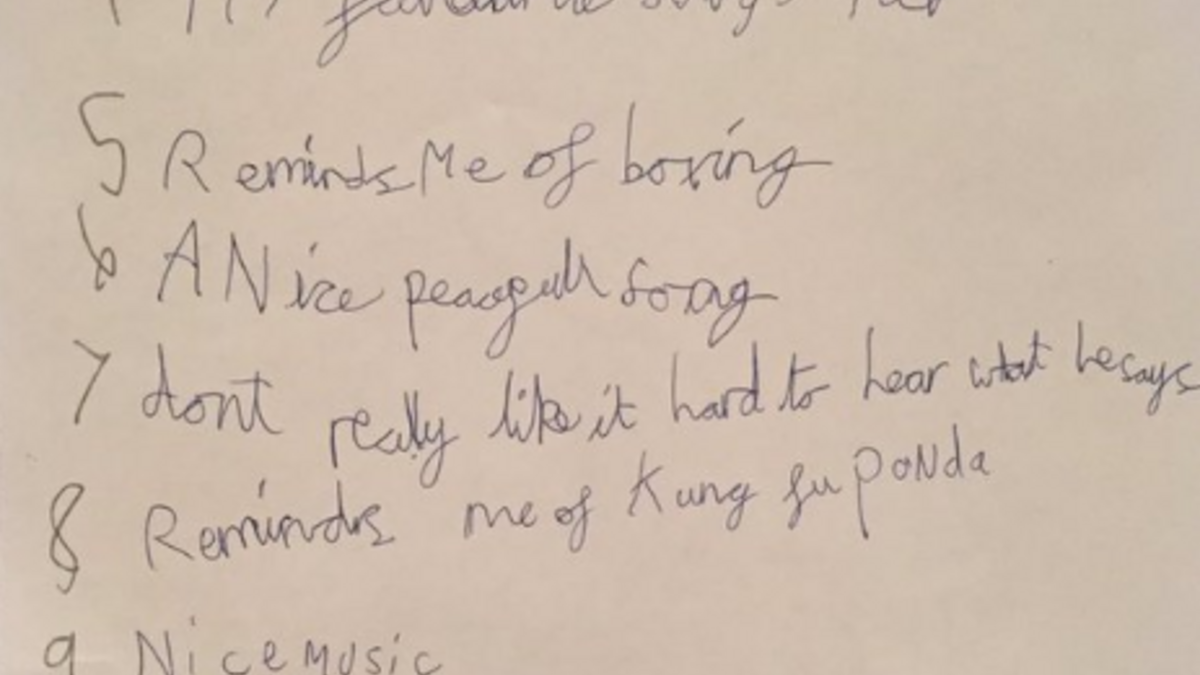 favourite songs
5 Reminds Me of boxing
6 A Nice peacefull song
7 dont really like it hard to hear what he says
8 Reminds me of Kung fu PaNda
9 Nice music